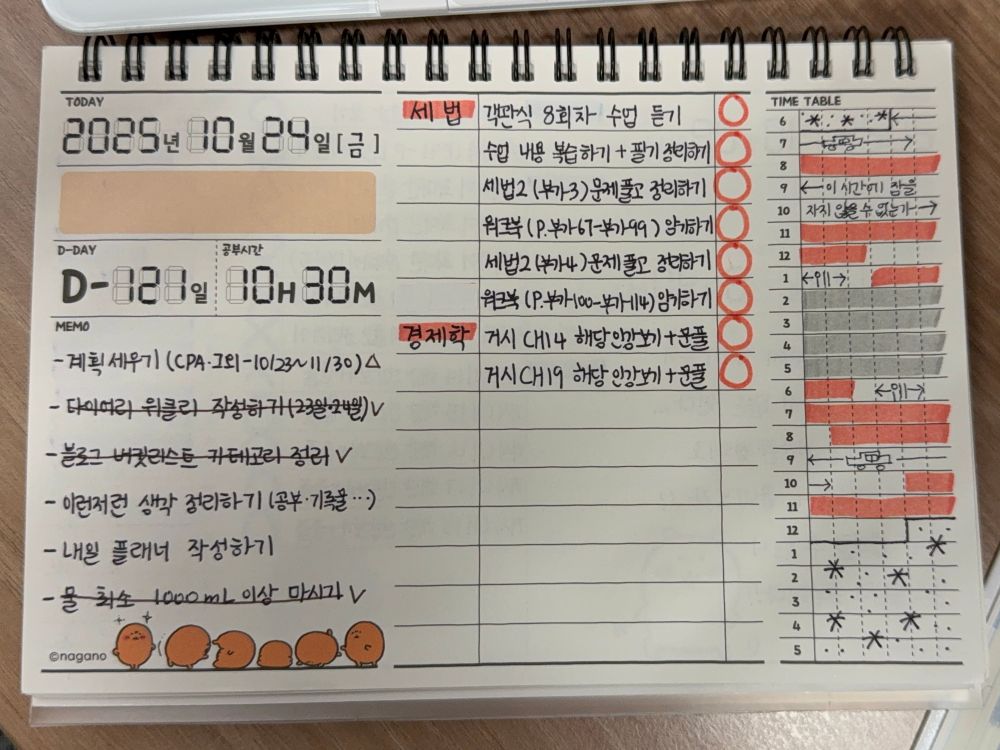 TODAY
2025년 10월 24일 [금]
D-DAY
공부시간
D-121일
10H 30M
MEMO
- 계획 세우기 (CPA·그외-10/23~11/30) △
- 다이어리 위클리 작성하기 (23일·24일) ✓
- 블로그 버킷리스트 카테고리 정리 ✓
- 이런저런 생각 정리하기 (공부·기록물…)
- 내일 플래너 작성하기
- 물 최소 1000mL 이상 마시기 ✓
©nagano
세법 객관식 8회차 수업 듣기
수업 내용 복습하기 + 필기 정리하기
세법2 (부가-3) 문제 풀고 정리하기
워크북 (P.부가-67-부가-99) 암기하기
세법2 (부가-4) 문제 풀고 정리하기
워크북 (P.부가-100-부가-114) 암기하기
경제학 거시 CH14 해당 인강보기 + 문풀
거시 CH19 해당 인강보기 + 문풀
TIME TABLE
6
7
8
9 이 시간에 잠을
10 자지 않을 수 없는가
11
12
1
2
3
4
5
6
7
8
9
10
11
12
1
2
3
4
5